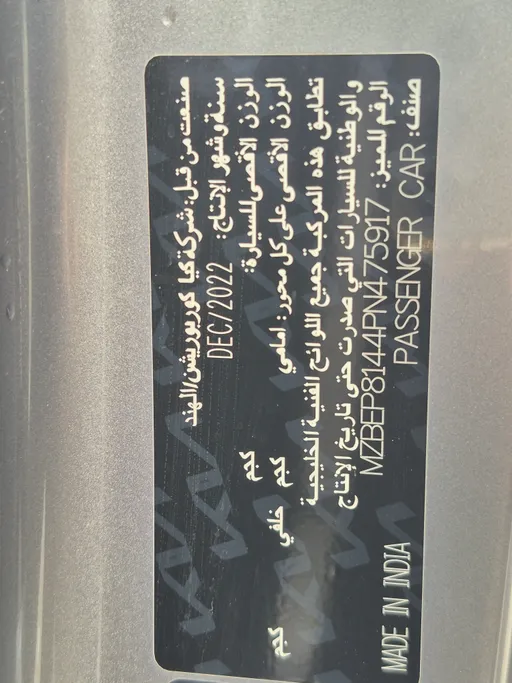 صنعت من قبل: شركة كيا كوربوريشن/الهند
سنة وشهر الإنتاج: DEC/2022
الوزن الأقصى للسيارة: كجم
الوزن الأقصى على كل محور: امامي كجم خلفي كجم
تطابق هذه المركبة جميع اللوائح الفنية الخليجية
والوطنية للسيارات التي صدرت حتى تاريخ الإنتاج
الرقم المميز: MZBEP8144PN475917
صنف: PASSENGER CAR MADE IN INDIA